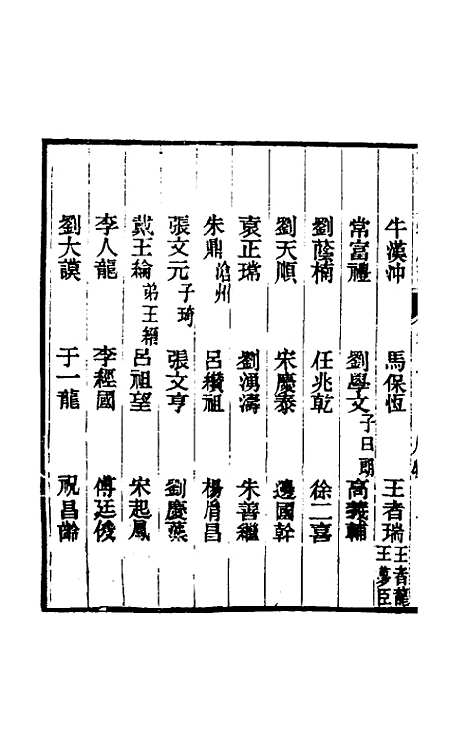 牛漢沖　馬保恆　王者瑞 王者龍 王夢臣
常富禮　劉學文 子曰朗　高義輔
劉蔭楠　任兆乾　徐二喜
劉天順　宋慶泰　邊國幹
袁正瑺　劉湧濤　朱善繼
朱鼎 滄州　呂纘祖　楊肩昌
張文元 子琦　張文亨　劉慶蕖
戴王綸 弟王縝　呂祖望　宋起鳳
李人龍　李經國　傅廷俊
劉大謨　于一龍　祝昌齡